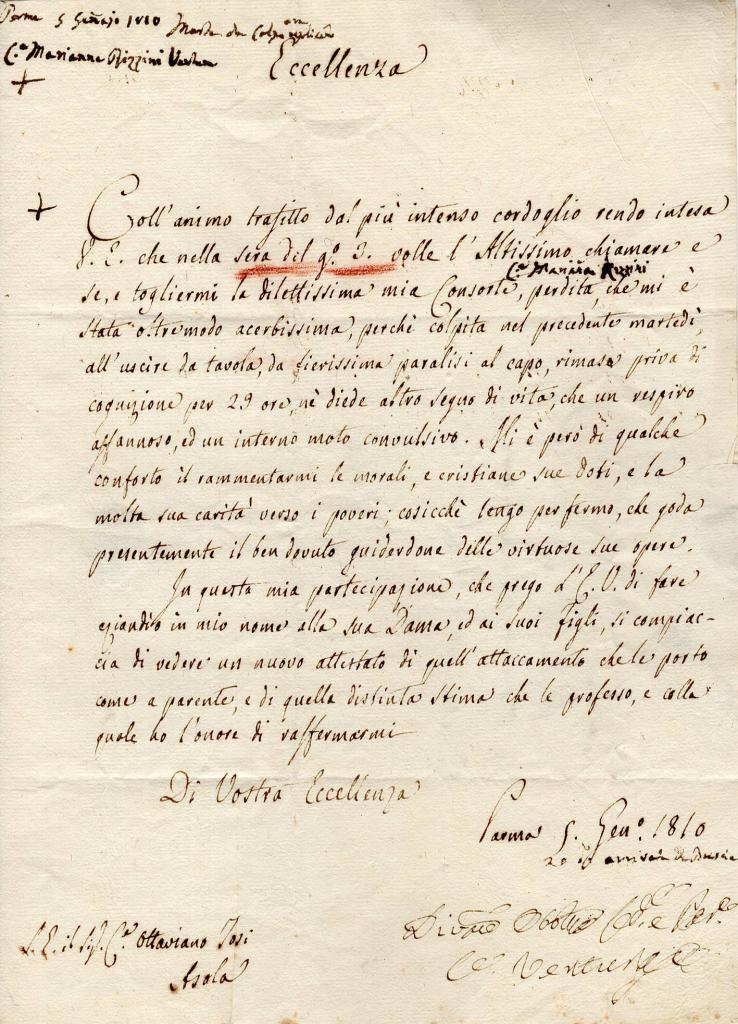 Parma 5 Genajo 1810 Morta da Colpo
C.a Marianna Rizzini Ventura
Eccellenza
Coll'animo trafitto dal più intenso cordoglio rendo intesa
V. E. che nella sera del g.o 3. volle l'Altissimo chiamare e
C.a Mariana Rizzini
se, e togliermi la dilettissima mia Consorte, perdita, che mi è
stata oltremodo acerbissima, perchè colpita nel precedente martedì,
all'uscire da tavola, da fierissima paralisi al capo, rimase priva di
cognizione per 29 ore, nè diede altro segno di vita, che un respiro
affannoso, ed un interno moto convulsivo. Mi è però di qualche
conforto il rammentarmi le morali, e cristiane sue doti, e la
molta sua carità verso i poveri; cosicchè tengo per fermo, che goda
presentemente il ben dovuto guiderdone delle virtuose sue opere.
In questa mia partecipazione, che prego L'E. V. di fare
eziandio in mio nome alla sua Dama, ed ai suoi figli, si compiac-
cia di vedere un nuovo attestato di quell'attaccamento che le porto
come a parente, e di quella distinta stima che le professo, e colla
quale ho l'onore di raffermarmi
Di Vostra Eccellenza
Parma 5. Gen.o 1810
S. E. il Sig. C.e Ottaviano Tosi
Asola